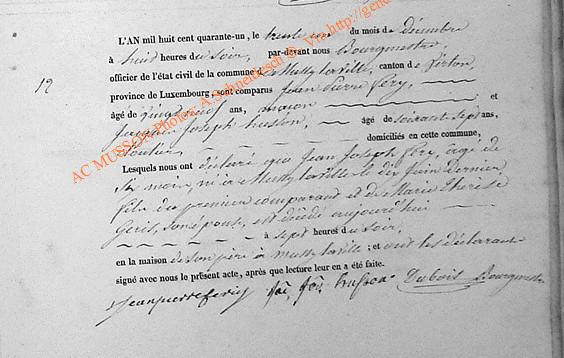 L'AN mil huit cent quarante-un, le trente un du mois de décembre
à huit heures du soir, par-devant nous Bourgmestre,
officier de l'état civil de la commune de Mussy la ville, canton de Virton,
12
province de Luxembourg, sont comparus Jean Pierre Féry,
âgé de vingt neuf ans, maçon et
Jacques Joseph husson, âgé de soixante sept ans,
domiciliés en cette commune,
Lesquels nous ont déclaré que Jean Joseph Féry, âgé de
six mois, né à Mussy la ville le dix Juin dernier
fils du premier comparant et de Marie Thérèse
son épouse, est décédé aujourd'hui
à sept heures du soir,
en la maison de son père à mussy la ville; et ont les déclarants
signé avec nous le présent acte, après que lecture leur en a été faite.
Jean pierre ferry husson Dubois Bourgmestre
AC MUSSON Photos: A.Schnettesch de Via http://gen